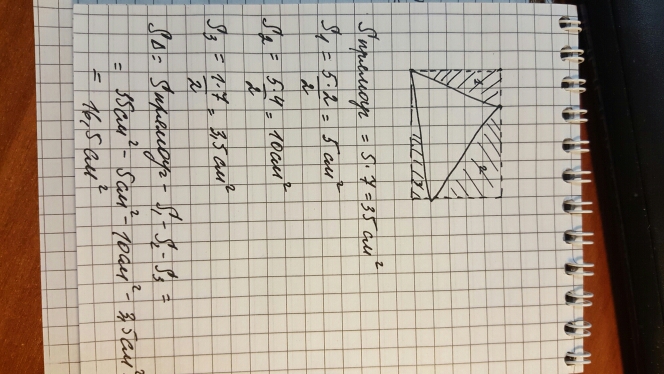 Sпрямоуг = 5·7=35 см²
S1 = 5·2/2 = 5 см²
S2 = 5·4/2 = 10 см²
S3 = 1·7/2 = 3,5 см²
SΔ = Sпрямоуг - S1 - S2 - S3 =
= 35 см² - 5 см² - 10 см² - 3,5 см²
= 16,5 см²
2